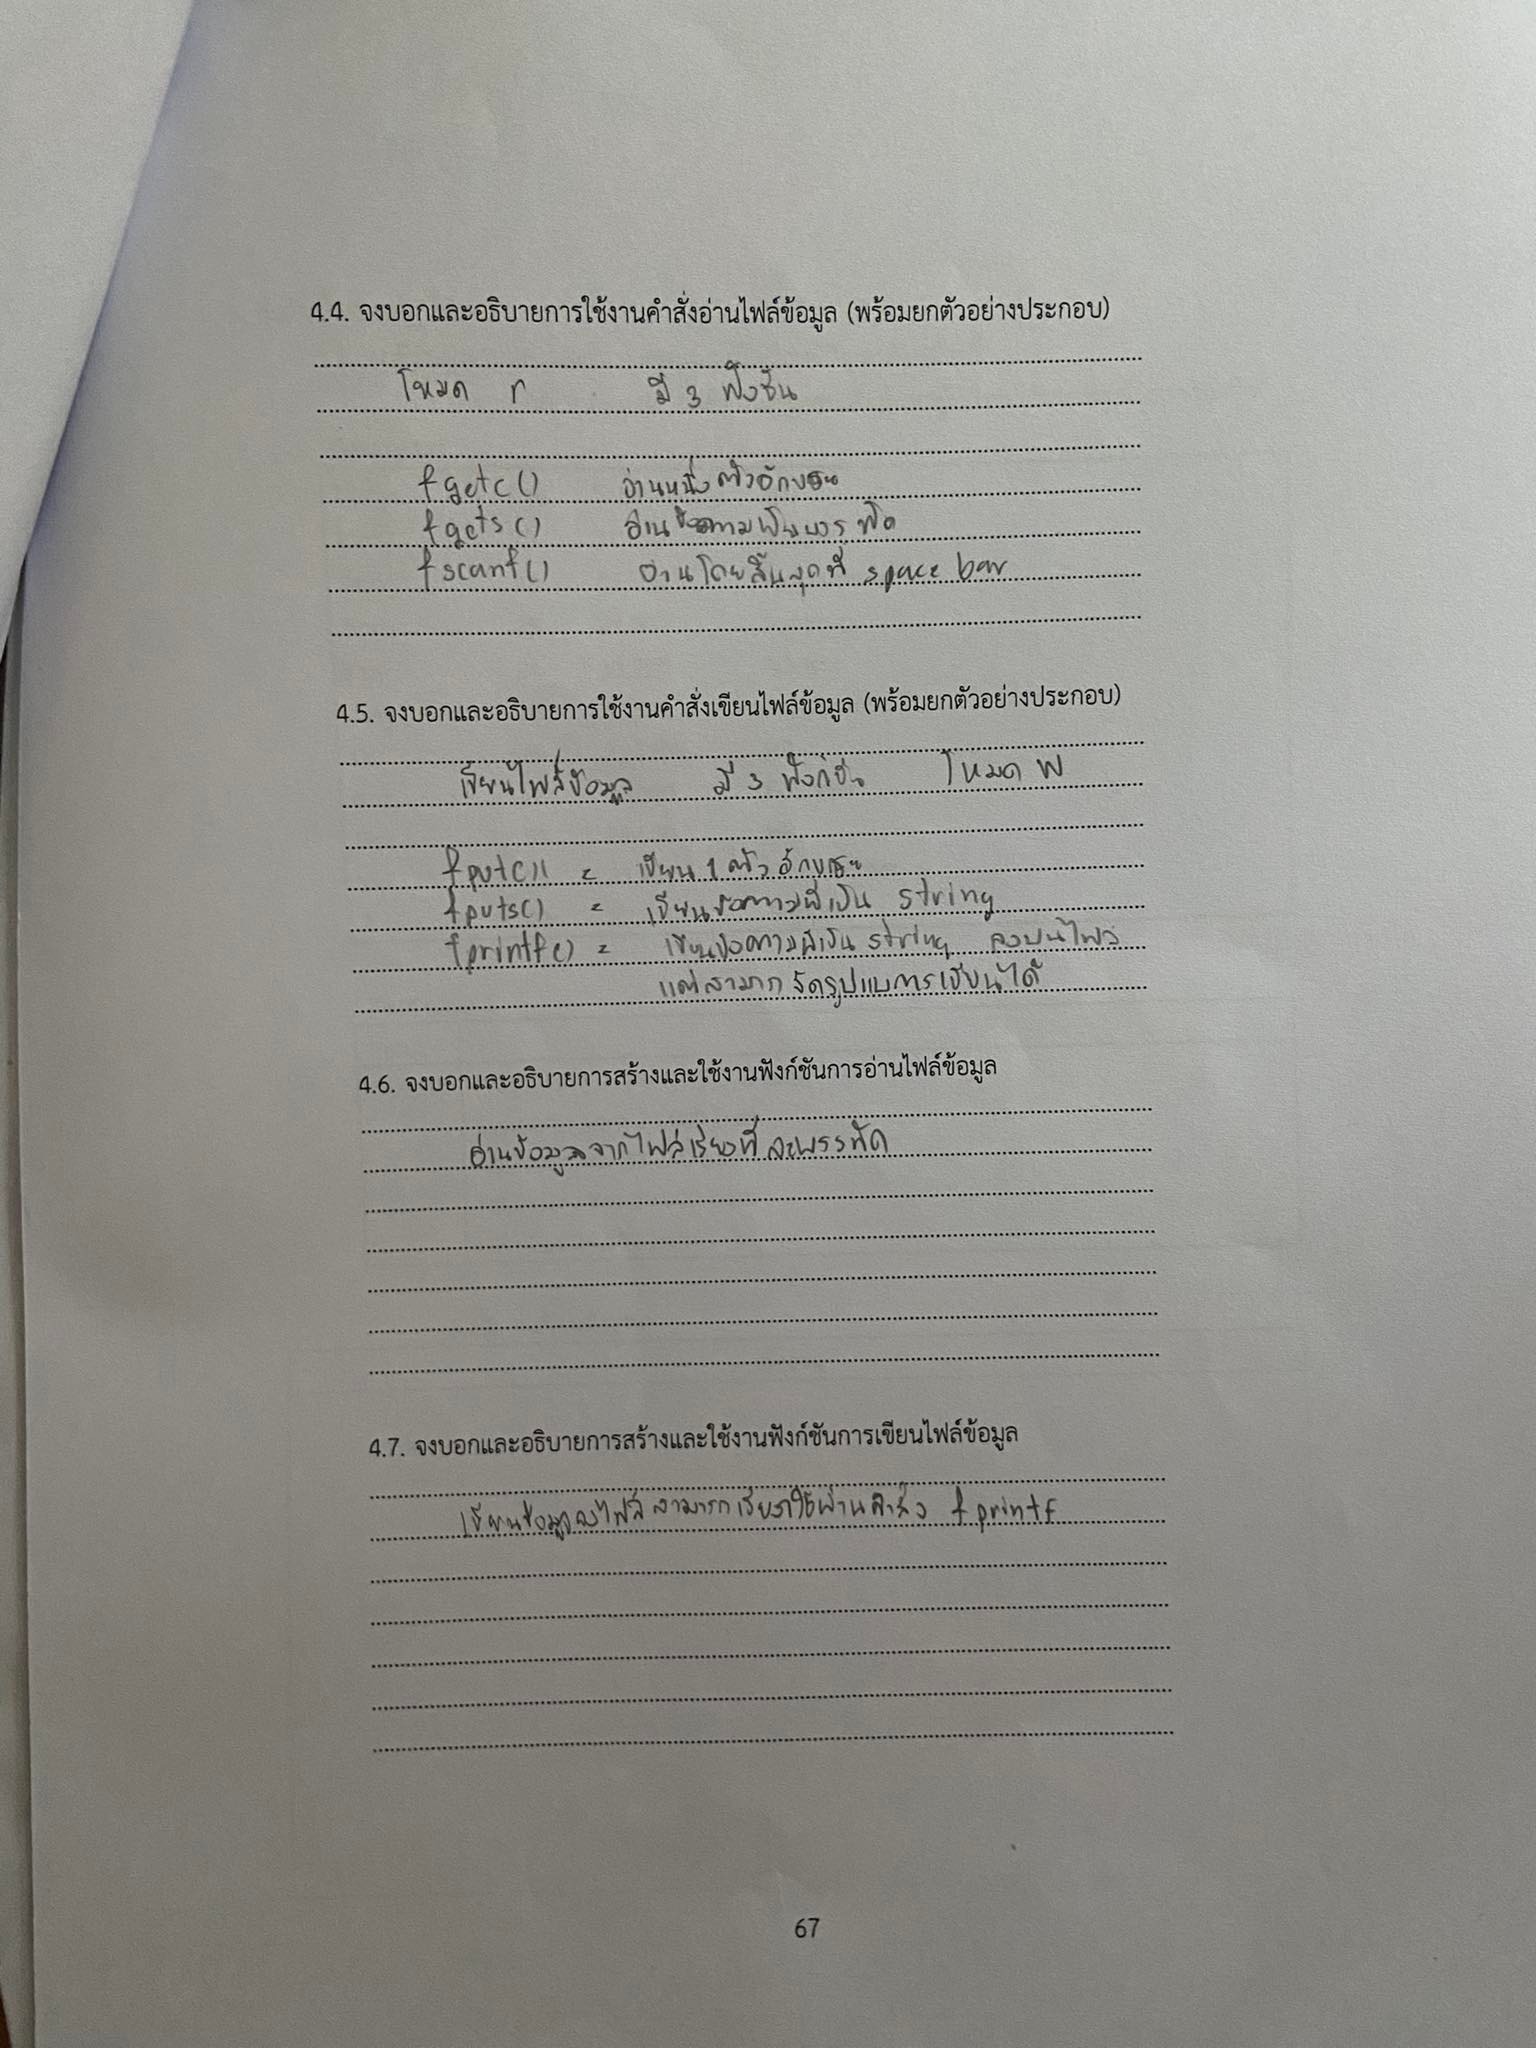 4.4. จงบอกและอธิบายการใช้งานคำสั่งอ่านไฟล์ข้อมูล (พร้อมยกตัวอย่างประกอบ)
โหมด r มี 3 ฟังชัน
fgetc() อ่านหนึ่งตัวอักษร
fgets() อ่านข้อความเป็น
fscanf() อ่านโดยสิ้นสุดที่ space bar
4.5. จงบอกและอธิบายการใช้งานคำสั่งเขียนไฟล์ข้อมูล (พร้อมยกตัวอย่างประกอบ)
เขียนไฟล์ข้อมูล มี 3 ฟังก์ชัน โหมด w
fputc() = เขียน 1 ตัวอักษร
fputs() = เขียนข้อความที่เป็น string
fprintf() = เขียนข้อความที่เป็น string ลงบนไฟล์
แต่สามาถ จัดรูปแบบการเขียนได้
4.6. จงบอกและอธิบายการสร้างและใช้งานฟังก์ชันการอ่านไฟล์ข้อมูล
อ่านข้อมูลจากไฟล์เรียงทีละพรรทัด
4.7. จงบอกและอธิบายการสร้างและใช้งานฟังก์ชันการเขียนไฟล์ข้อมูล
เขียนข้อมูลลงไฟล์สามารถเรียกใช้ผ่านคำสั่ง fprintf
67